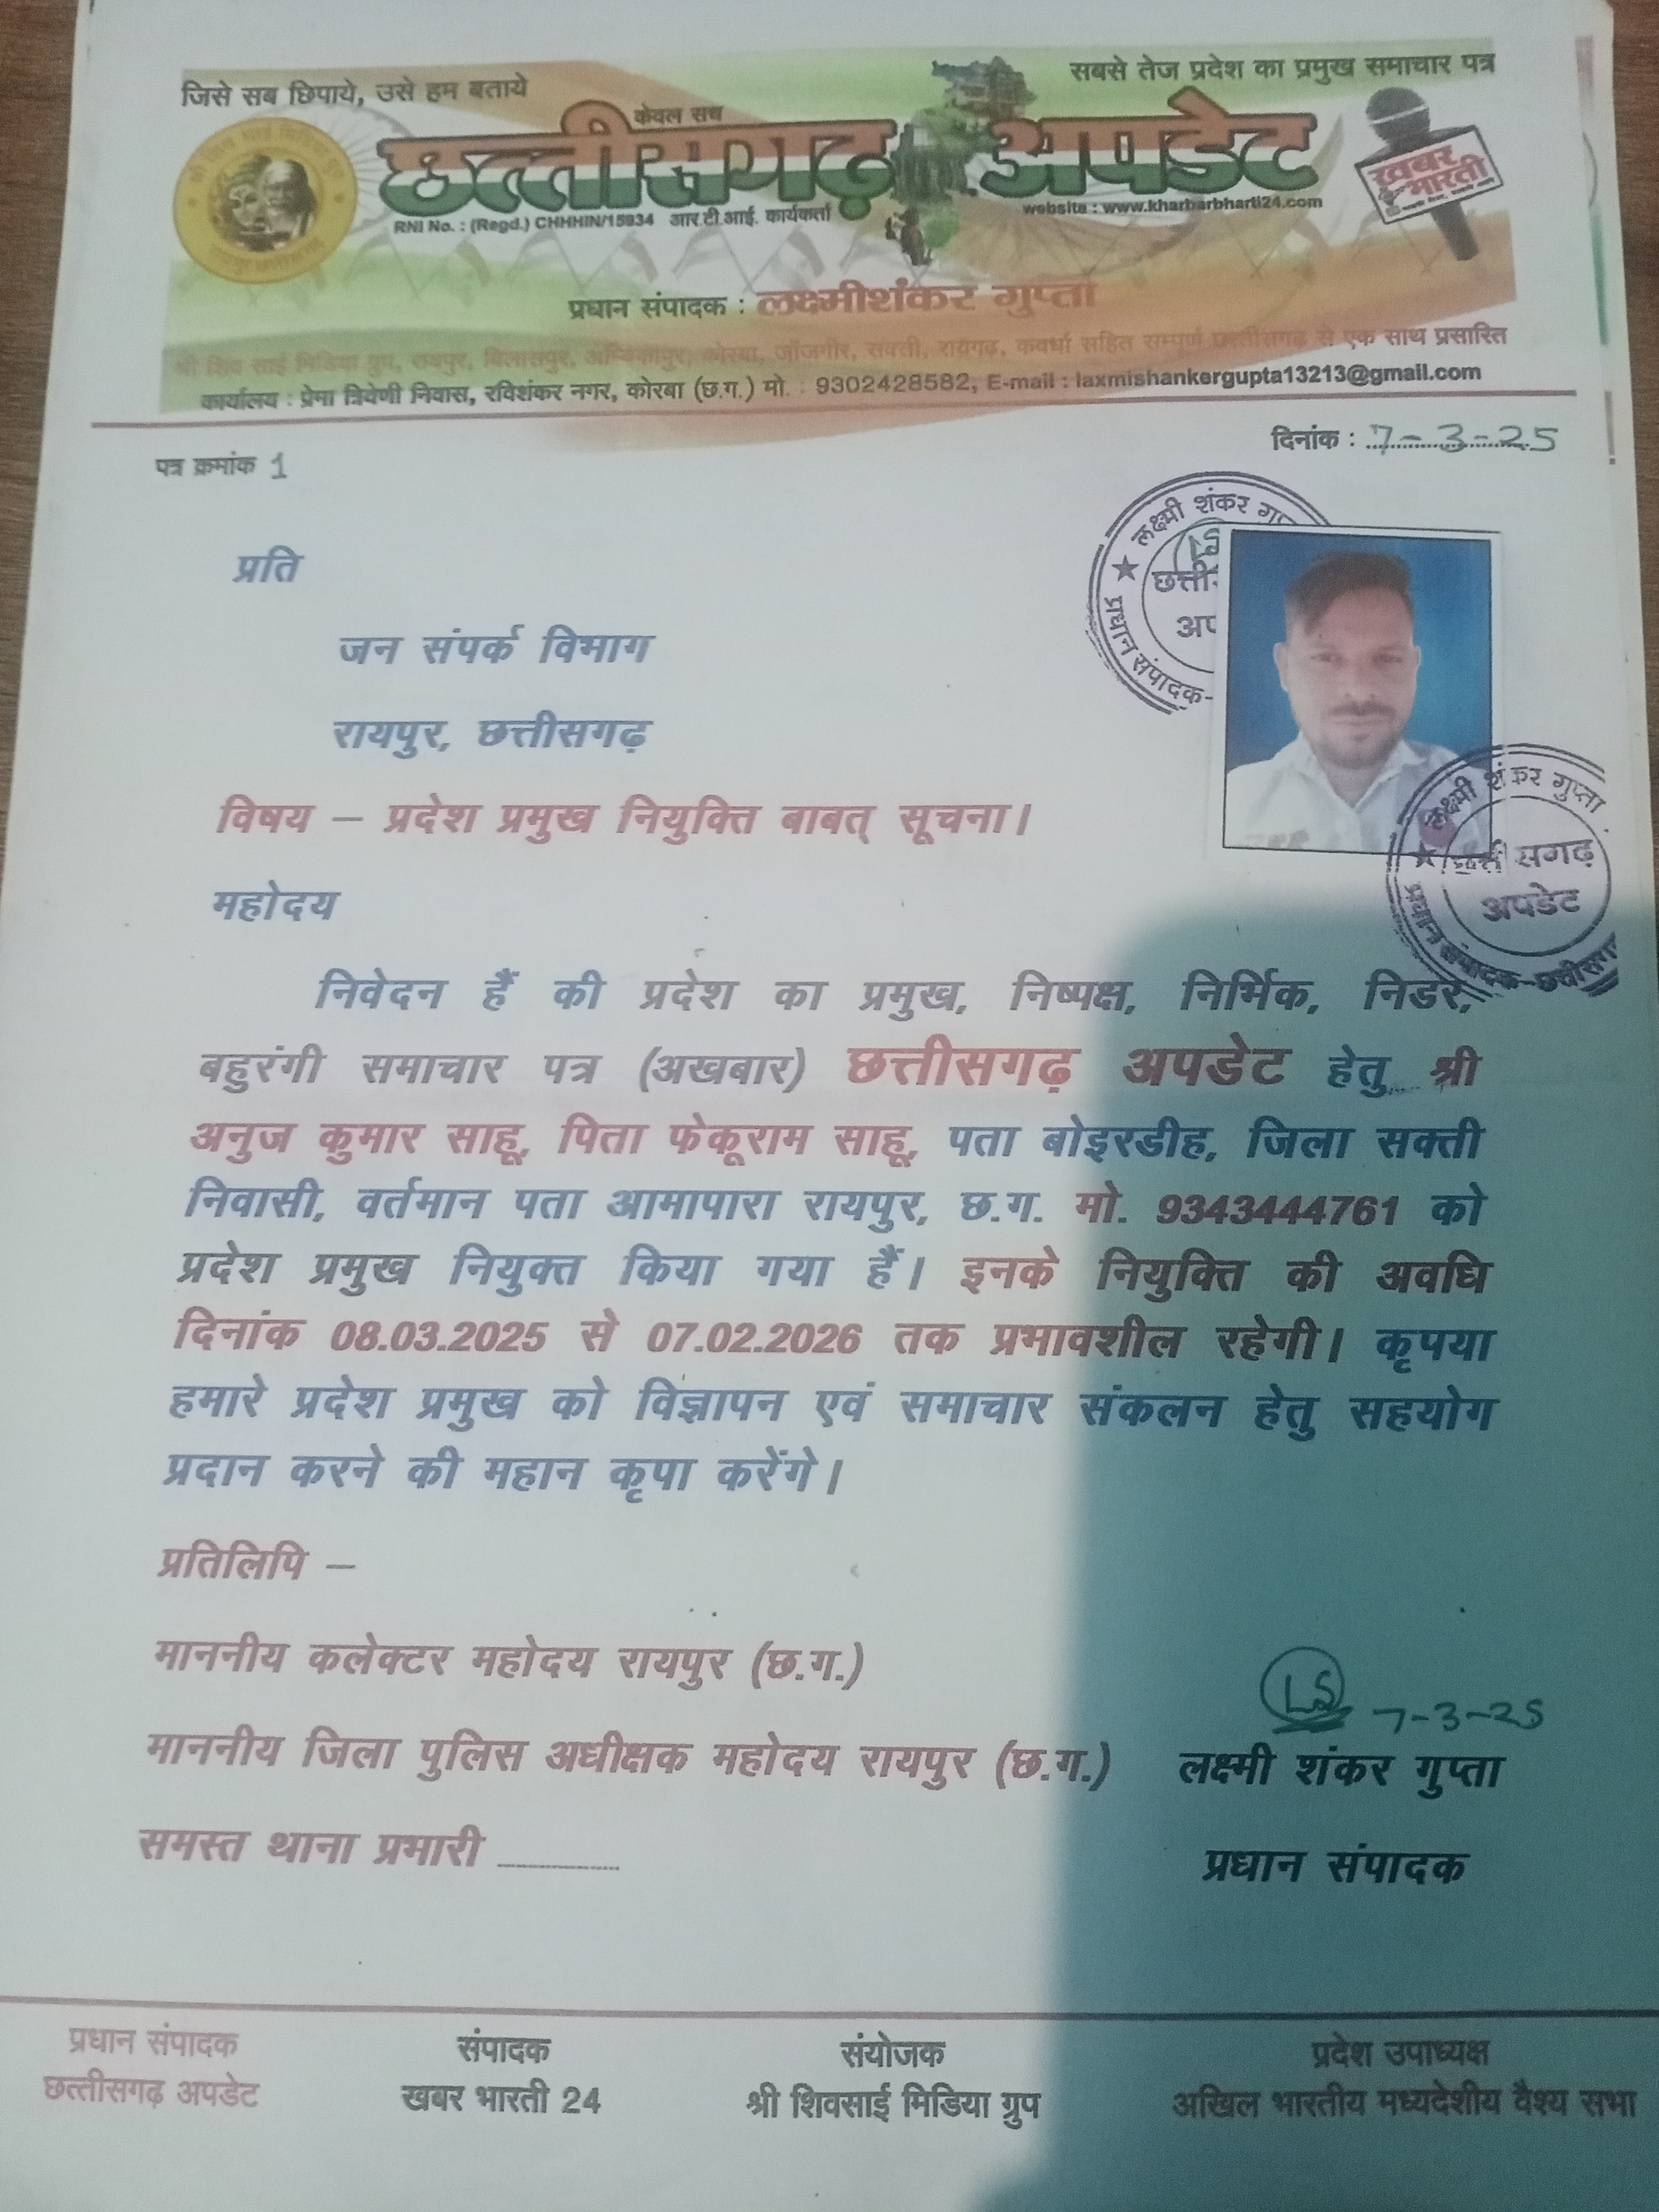 जिसे सब छिपाये, उसे हम बताये
सबसे तेज प्रदेश का प्रमुख समाचार पत्र
केवल सच
छत्तीसगढ़ अपडेट
खबर भारती
RNI No. : (Regd.) CHHHIN/15934 आर.टी.आई. कार्यकर्ता
website : www.kharbarbharti24.com
प्रधान संपादक : लक्ष्मीशंकर गुप्ता
श्री शिव साई मिडिया ग्रुप, रायपुर, बिलासपुर, अम्बिकापुर, कोरबा, जाँजगीर, सक्ती, रायगढ़, कवर्धा सहित सम्पूर्ण छत्तीसगढ़ से एक साथ प्रसारित
कार्यालय : प्रेमा त्रिवेणी निवास, रविशंकर नगर, कोरबा (छ.ग.) मो. : 9302428582, E-mail : laxmishankergupta13213@gmail.com
दिनांक : 7-3-25
पत्र क्रमांक 1
लक्ष्मी शंकर
प्रधान संपादक-
प्रति
जन संपर्क विभाग
रायपुर, छत्तीसगढ़
विषय – प्रदेश प्रमुख नियुक्ति बाबत् सूचना।
लक्ष्मी शंकर गुप्ता
छत्तीसगढ़
अपडेट
प्रधान संपादक-छत्तीसगढ़
महोदय
निवेदन हैं की प्रदेश का प्रमुख, निष्पक्ष, निर्भिक, निडर,
बहुरंगी समाचार पत्र (अखबार) छत्तीसगढ़ अपडेट हेतु श्री
अनुज कुमार साहू, पिता फेकूराम साहू, पता बोइरडीह, जिला सक्ती
निवासी, वर्तमान पता आमापारा रायपुर, छ.ग. मो. 9343444761 को
प्रदेश प्रमुख नियुक्त किया गया हैं। इनके नियुक्ति की अवधि
दिनांक 08.03.2025 से 07.02.2026 तक प्रभावशील रहेगी। कृपया
हमारे प्रदेश प्रमुख को विज्ञापन एवं समाचार संकलन हेतु सहयोग
प्रदान करने की महान कृपा करेंगे।
प्रतिलिपि –
माननीय कलेक्टर महोदय रायपुर (छ.ग.)
LS 7-3-25
माननीय जिला पुलिस अधीक्षक महोदय रायपुर (छ.ग.)
लक्ष्मी शंकर गुप्ता
समस्त थाना प्रभारी ..........
प्रधान संपादक
प्रधान संपादक संपादक संयोजक प्रदेश उपाध्यक्ष
छत्तीसगढ़ अपडेट खबर भारती 24 श्री शिवसाई मिडिया ग्रुप अखिल भारतीय मध्यदेशीय वैश्य सभा